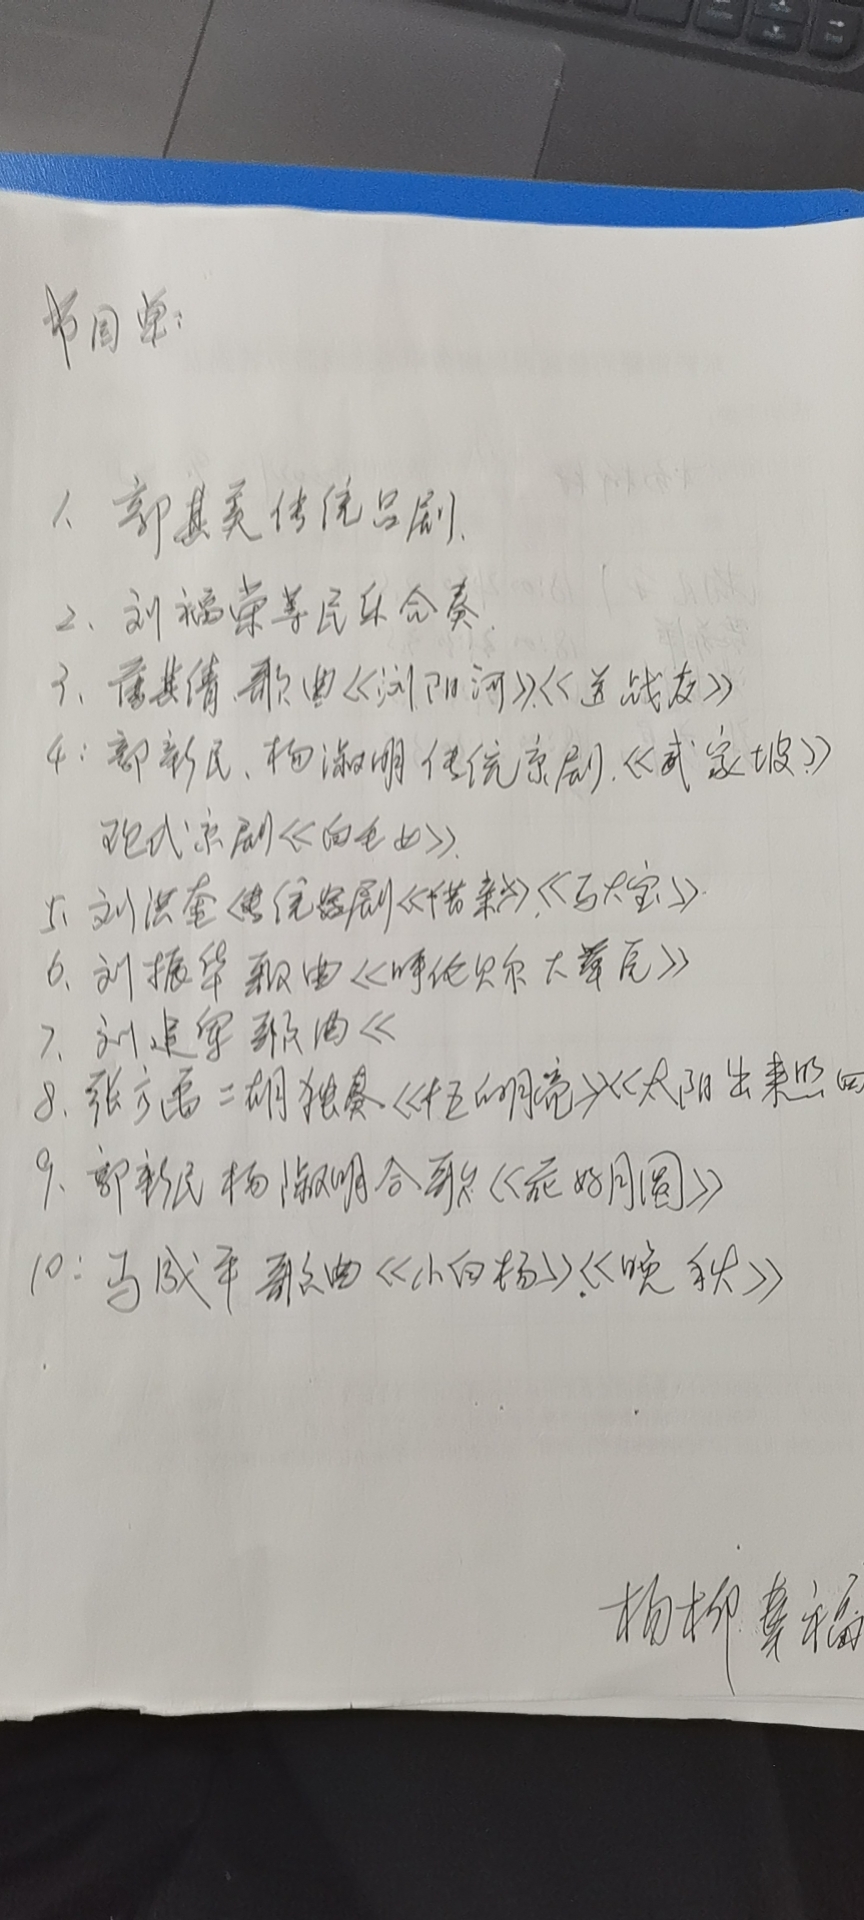 节目单:
1、郭其美传统吕剧、
2、刘福荣等民乐合奏
3、其倩、歌曲《浏阳河》、《送战友》
4:郭新民、杨淑明传统京剧、《武家坡》
现代京剧《白毛女》、
5、刘洪奎传统吕剧《借亲》、《马大宝》
6、刘振华歌曲《呼伦贝尔大草原》
7、刘建军歌曲《
8、张方 二胡独奏《十五的明亮》《太阳出来照四
9、郭新民杨淑明合歌《花好月圆》
10:马成平歌曲《小白杨》、《晚秋》
杨柳 福